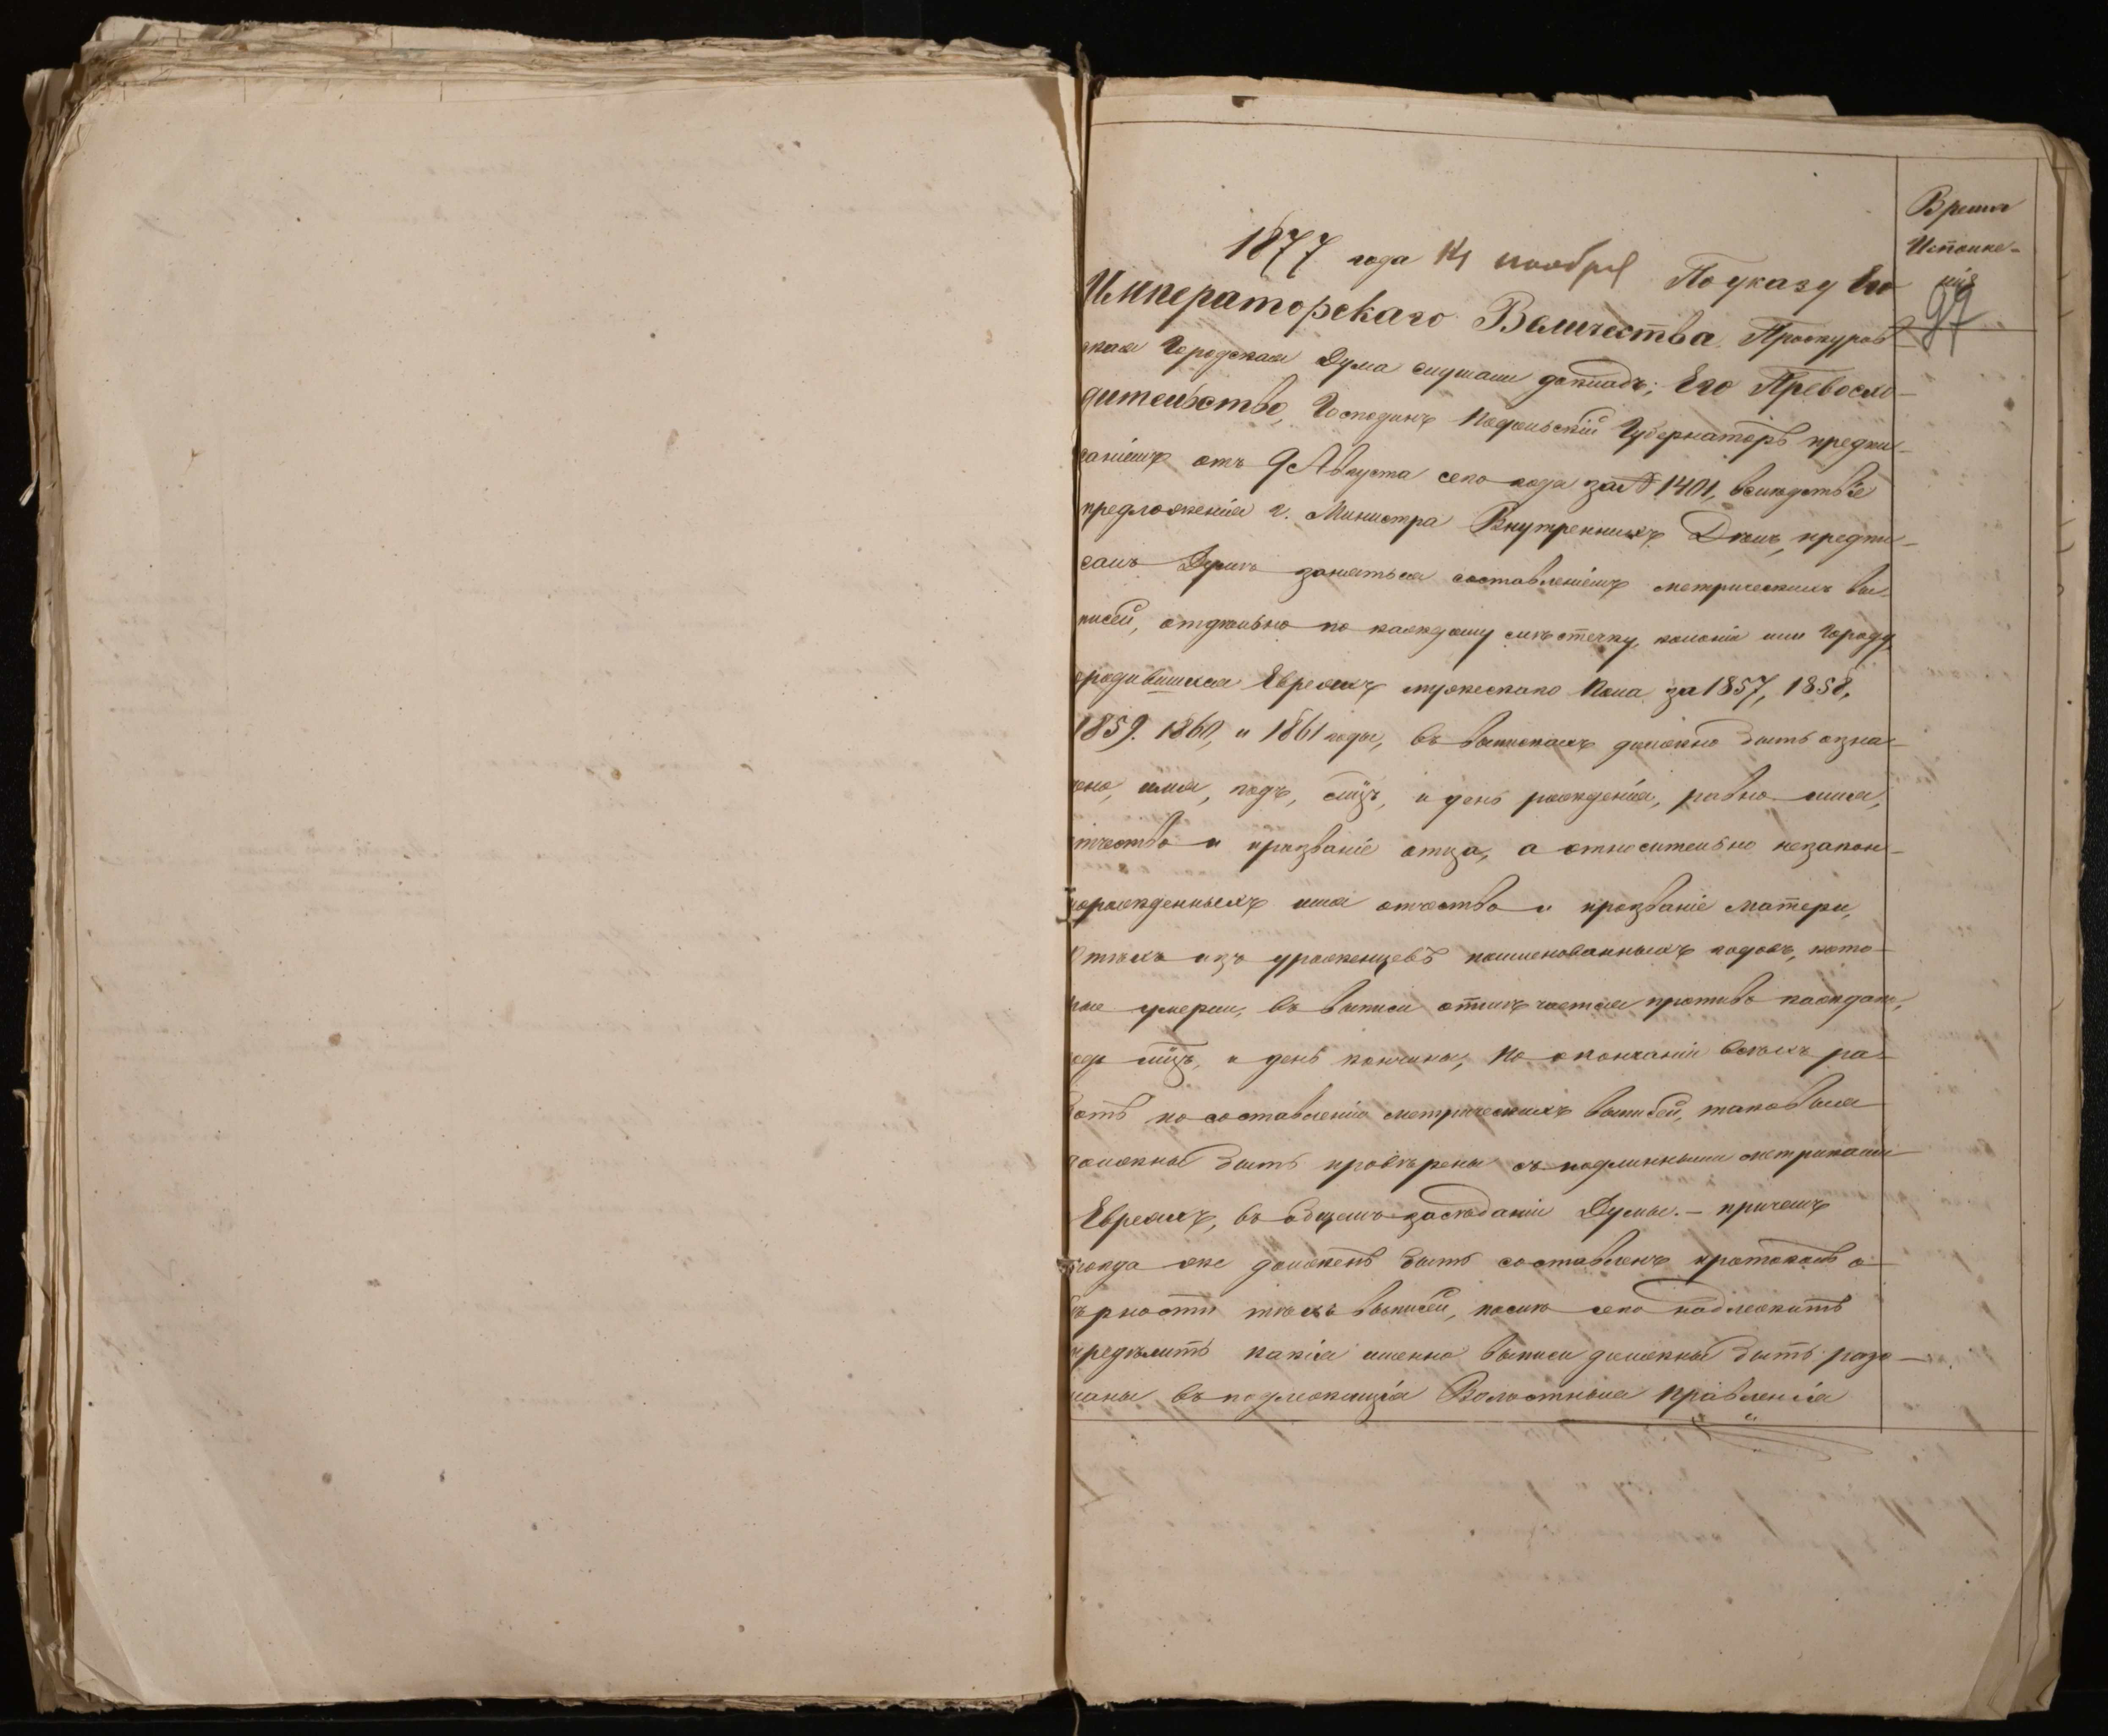 Время
Исполне-
нія
97
1877 года 14 ноября По указу Его
Императорскаго Величества Проскуров
ская Городская Дума слушали докладъ; Его Превосхо-
дительство, Господинъ Подольскій Губернаторъ предпи-
саніемъ отъ 9 Августа сего года за № 1401, вслѣдствіе
предложенія г. Министра Внутреннихъ Дѣлъ, предпи-
салъ Думѣ заняться составленіемъ метрическихъ вы-
писей, отдѣльно по каждому мѣстечку, колоніи или Городу,
родившихся Евреяхъ мужескаго пола за 1857, 1858,
1859. 1860, и 1861 годы, въ выпискахъ должно быть озна-
чено, имя, годъ, мѣсяцъ, и день рожденія, равно имя,
отчество и прозваніе отца, а относительно незакон-
норожденныхъ имя отчество и прозваніе матери,
О тѣхъ изъ уроженцевъ поименованныхъ годовъ, кото-
рые умерли, въ выписи отмѣчается противъ каждаго,
годъ мѣсяцъ, и день кончины, По окончаніи всѣхъ ра-
ботъ по составленію метрическихъ выписей, таковыя
должны быть провѣрены съ подлинными метриками
Евреяхъ, въ общемъ засѣданіи Думы. - причемъ
тогда же долженъ быть составленъ протоколъ о
вѣрности тѣхъ выписей, послѣ сего надлежитъ
опредѣлить какія именно выписи должны быть разо-
сланы въ подлежащія Волостныя правленія